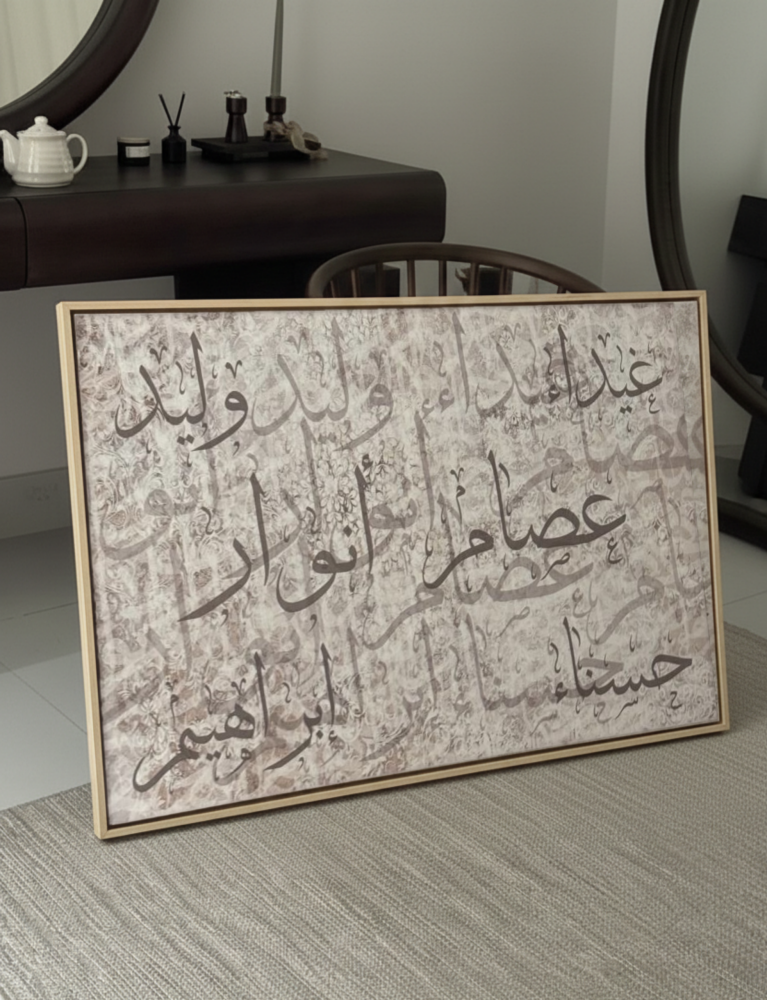 غيداء وليد
عصام أنوار
حسناء إبراهيم